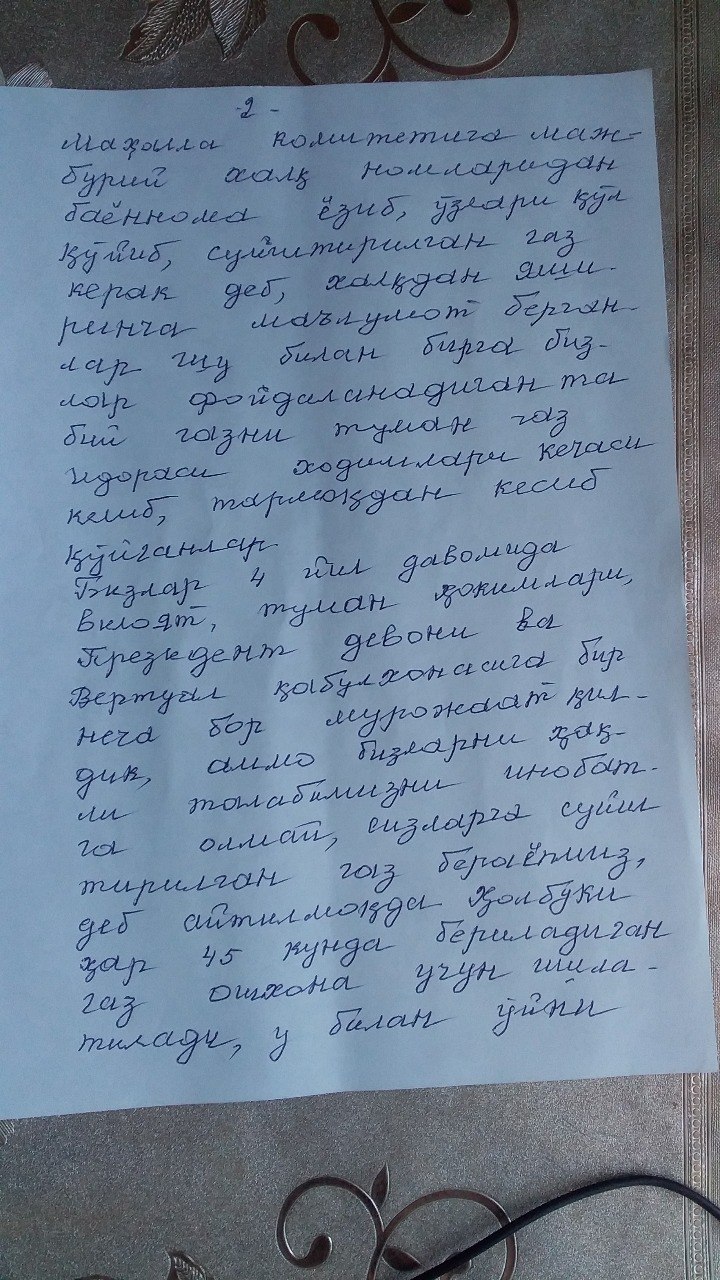 -2-
Маҳалла комитетига маж-
бурий халқ номларидан
баённома ёзиб, ўзлари қўл
қўйиб, суйитирилган газ
керак деб, халқдан яши-
ринча маълумот берган-
лар шу билан бирга биз-
лар фойдаланадиган та
бий газни туман газ
идораси ходимлари кечаси
келиб, тармоқдан кесиб
қўйганлар
Бизлар 4 йил давомида
вилоят, туман ҳокимлари,
Президент девони ва
Вертуал қабулхонасига бир
неча бор мурожаат қил-
дик, аммо бизларни ҳақ-
ли талабимизни инобат-
га олмай, сизларга суйил
тирилган газ бераёпмиз,
деб айтилмоқда ҳолбуки
ҳар 45 кунда бериладиган
газ ошхона учун ишла-
тилади, у билан ўйни